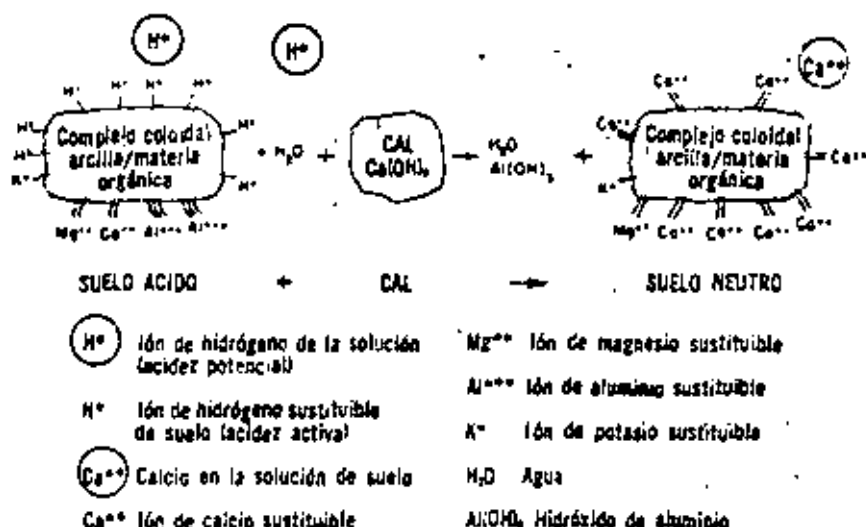 H⁺ H⁺ Ca⁺⁺
H⁺ H⁺ H⁺ H⁺ H⁺ Ca⁺⁺ Ca⁺⁺
H⁺ Complejo coloidal H⁺ CAL H₂O Ca⁺⁺ Complejo coloidal
H⁺ arcilla/materia + H₂O + Ca(OH)₂ → Al(OH)₃ + arcilla/materia Ca⁺⁺
K⁺ orgánica H⁺ K⁺ orgánica
Mg⁺⁺ Ca⁺⁺ Al⁺⁺⁺ Al⁺⁺⁺ Mg⁺⁺ Ca⁺⁺ Ca⁺⁺ Ca⁺⁺ Ca⁺⁺
SUELO ACIDO + CAL → SUELO NEUTRO
H⁺ Ión de hidrógeno de la solución
(acidez potencial)
H⁺ Ión de hidrógeno sustituible
de suelo (acidez activa)
Ca⁺⁺ Calcio en la solución de suelo
Ca⁺⁺ Ión de calcio sustituible
Mg⁺⁺ Ión de magnesio sustituible
Al⁺⁺⁺ Ión de aluminio sustituible
K⁺ Ión de potasio sustituible
H₂O Agua
Al(OH)₃ Hidróxido de aluminio